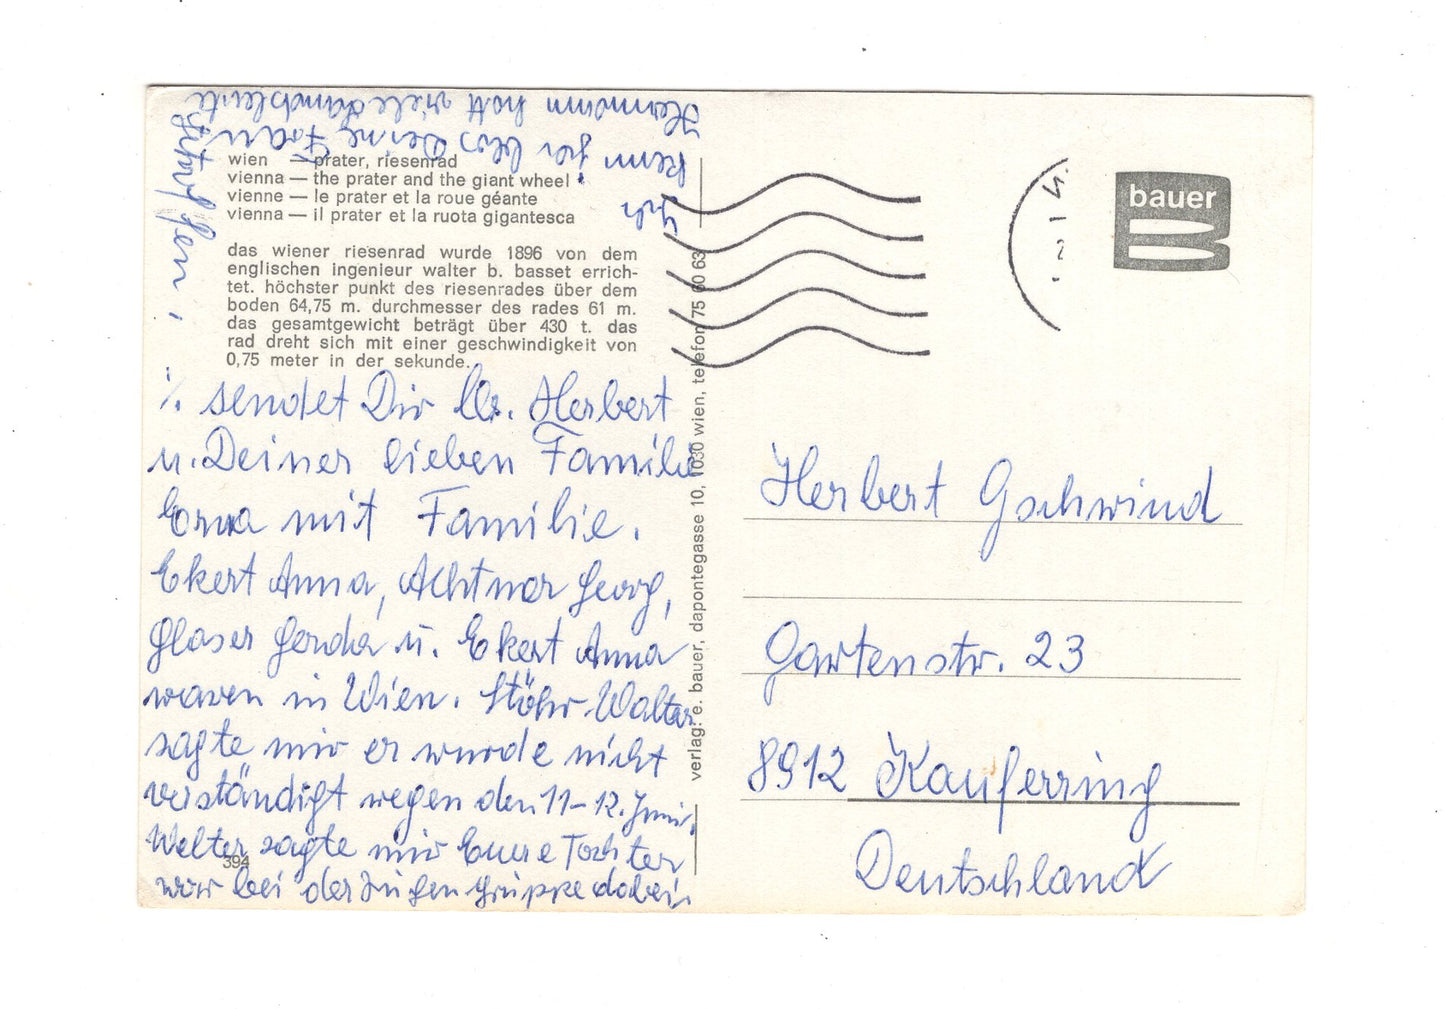 wien — prater, riesenrad
vienna — the prater and the giant wheel
vienne — le prater et la roue géante
vienna — il prater et la ruota gigantesca
das wiener riesenrad wurde 1896 von dem
englischen ingenieur walter b. basset errich-
tet. höchster punkt des riesenrades über dem
boden 64,75 m. durchmesser des rades 61 m.
das gesamtgewicht beträgt über 430 t. das
rad dreht sich mit einer geschwindigkeit von
0,75 meter in der sekunde.
·/. sendet Dir Herbert
u. Deiner lieben Familie
Erna mit Familie.
Ekert Anna, Achtner Georg,
Glaser Gerda u. Ekert Anna
waren in Wien. Stöhr Walter
sagte mir er wurde nicht
verständigt wegen den 11-12. Juni.
Walter sagte mir Eure Tochter
war bei der Jugen Gruppe dabei
Ich
kenn gar blos Deine Frau
Hermann hatt viele Landsleute
getroffen!
394
verlag: e. bauer, dapontegasse 10, 1030 wien, telefon 75 60 63
bauer
Herbert Gschwind
Gartenstr. 23
8912 Kauferring
Deutschland